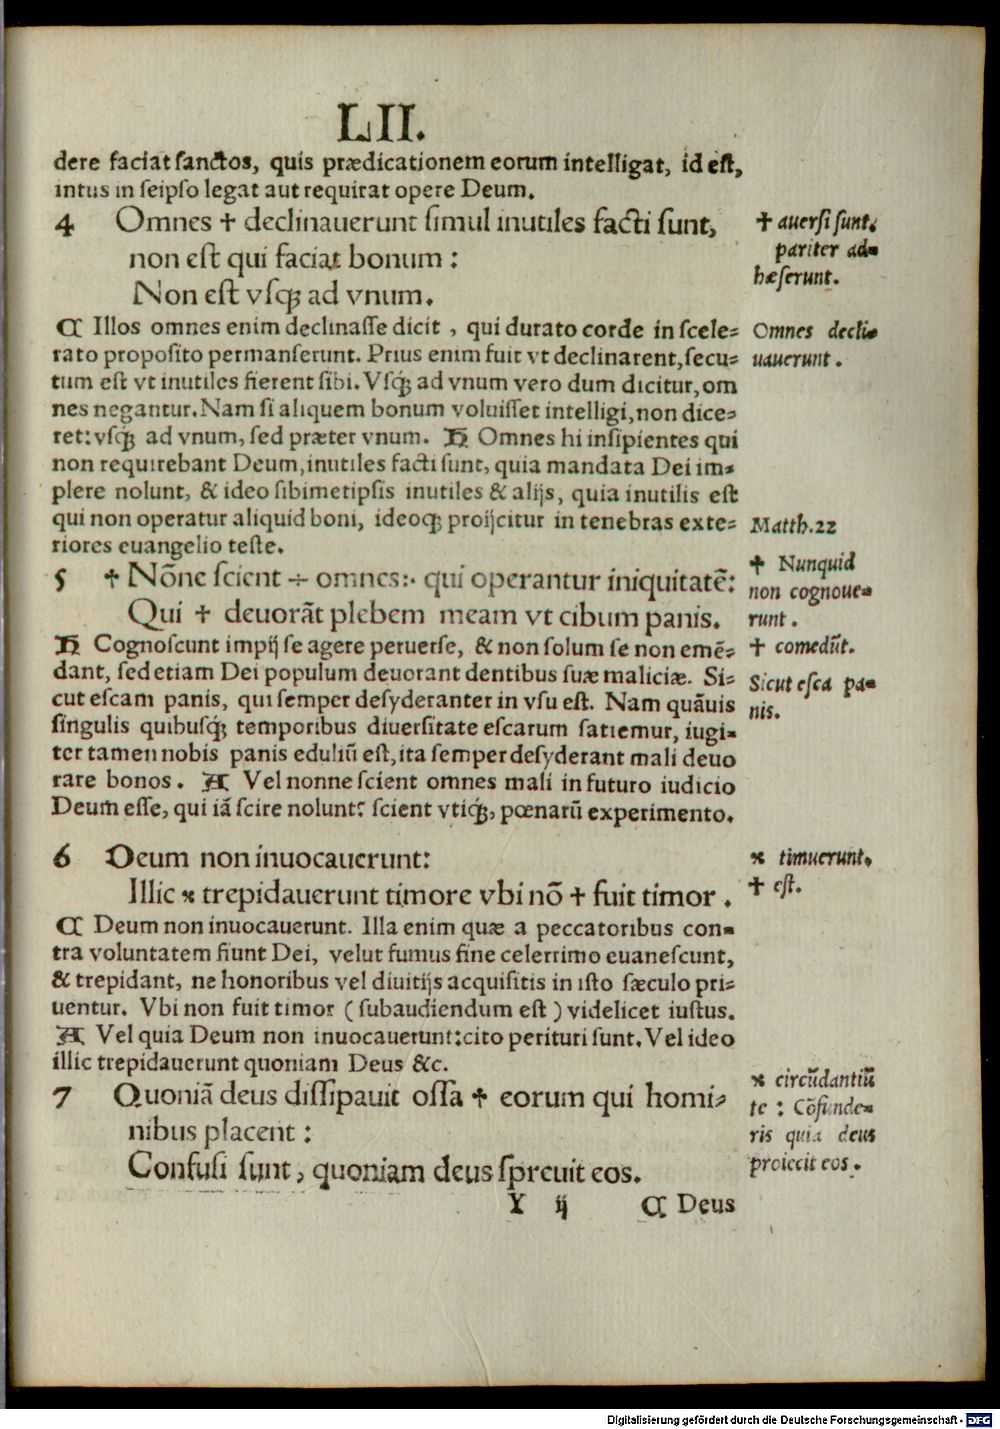 LII.
dere faciat ſanctos, quis prædicationem eorum intelligat, id eſt,
intus in ſeipſo legat aut requirat opere Deum.
4 Omnes ✝ declinauerunt ſimul inutiles facti ſunt,
non eſt qui faciat bonum:
Non eſt vſq; ad vnum.
✝ auerſi ſunt.
pariter ad-
hæſerunt.
C Illos omnes enim declinaſſe dicit, qui durato corde in ſcele-
rato propoſito permanſerunt. Prius enim fuit vt declinarent, ſecu-
tum eſt vt inutiles fierent ſibi. Vſq; ad vnum vero dum dicitur, om
nes negantur. Nam ſi aliquem bonum voluiſſet intelligi, non dice-
ret: vſq; ad vnum, ſed præter vnum. H Omnes hi inſipientes qui
non requirebant Deum, inutiles facti ſunt, quia mandata Dei im-
plere nolunt, & ideo ſibimetipſis inutiles & alijs, quia inutilis eſt
qui non operatur aliquid boni, ideoq; proijcitur in tenebras exte-
riores euangelio teſte.
Omnes decli-
uauerunt.
Matth.22
5 ✝ Nōne ſcient ÷ omnes:· qui operantur iniquitatē:
Qui ✝ deuorāt plebem meam vt cibum panis.
✝ Nunquid
non cognoue-
runt.
✝ comedūt.
H Cognoſcunt impij ſe agere peruerſe, & non ſolum ſe non emē-
dant, ſed etiam Dei populum deuorant dentibus ſuæ maliciæ. Si-
cut eſcam panis, qui ſemper deſyderanter in vſu eſt. Nam quāuis
ſingulis quibuſq; temporibus diuerſitate eſcarum ſatiemur, iugi-
ter tamen nobis panis eduliū eſt, ita ſemper deſyderant mali deuo
rare bonos. A Vel nonne ſcient omnes mali in futuro iudicio
Deum eſſe, qui iā ſcire nolunt: ſcient vtiq;, pœnarū experimento.
Sicut eſca pa-
nis.
6 Deum non inuocauerunt:
Illic ⁊ trepidauerunt timore vbi nō ✝ fuit timor.
⁊ timuerunt.
✝ eſt.
C Deum non inuocauerunt. Illa enim quæ a peccatoribus con-
tra voluntatem fiunt Dei, velut fumus ſine celerrimo euaneſcunt,
& trepidant, ne honoribus vel diuitijs acquiſitis in iſto ſæculo pri-
uentur. Vbi non fuit timor (ſubaudiendum eſt) videlicet iuſtus.
A Vel quia Deum non inuocauerunt: cito perituri ſunt. Vel ideo
illic trepidauerunt quoniam Deus &c.
7 Quoniā deus diſſipauit oſſa ✝ eorum qui homi-
nibus placent:
Confuſi ſunt, quoniam deus ſpreuit eos.
⁊ circūdantiū
te: Cōfunde-
ris quia deus
proiecit eos.
Y ij C Deus
Digitalisierung gefördert durch die Deutsche Forschungsgemeinschaft - DFG